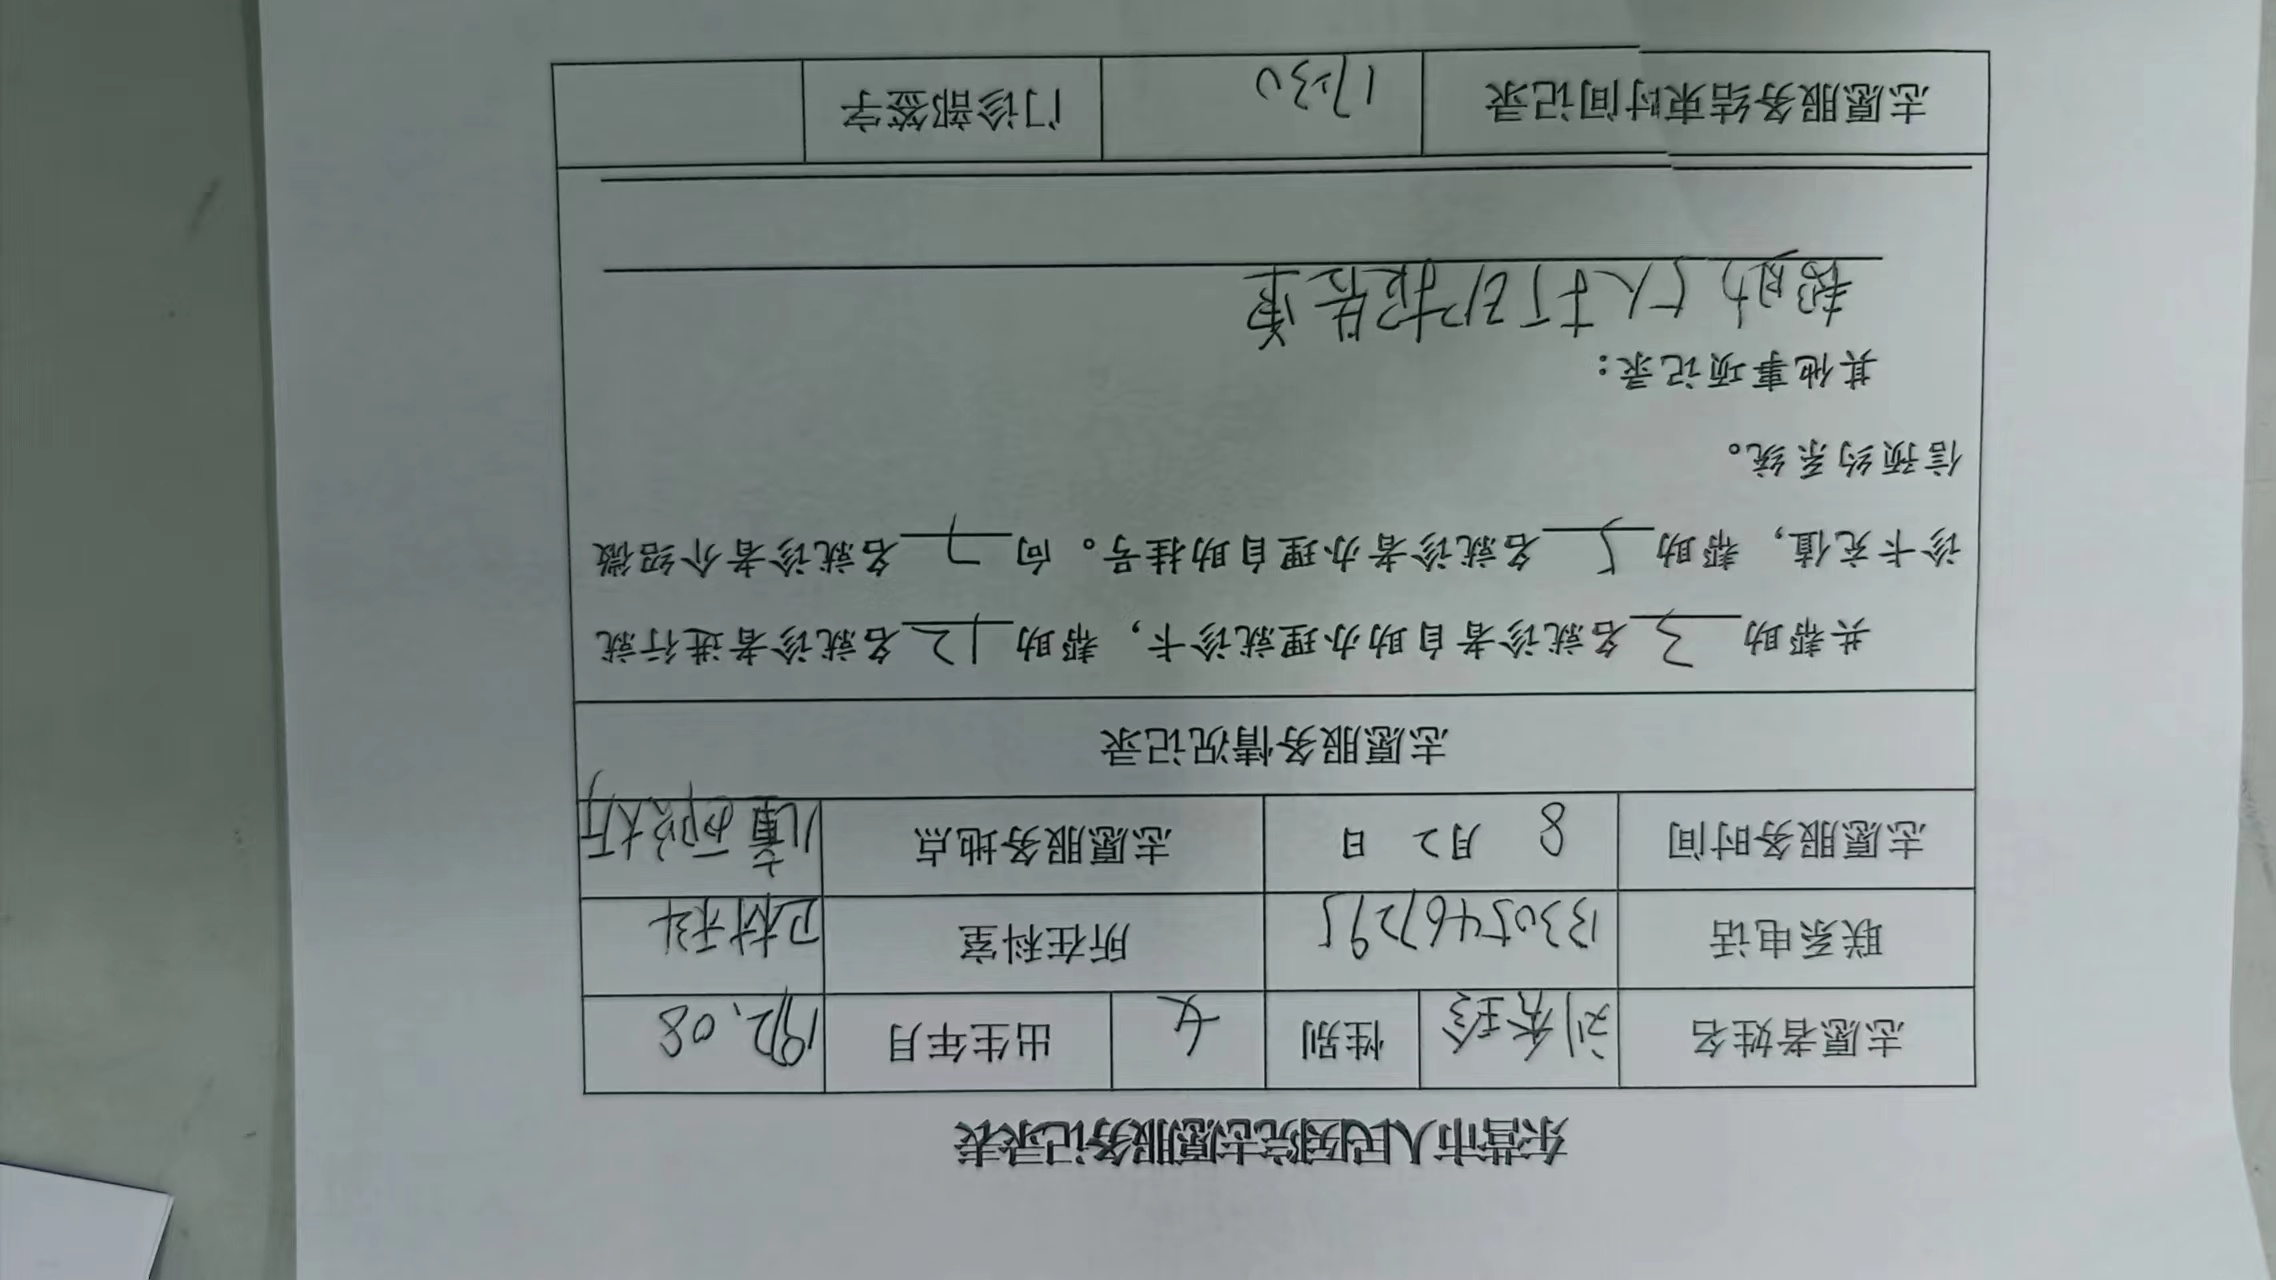 东营市人民医院志愿服务记录表
志愿者姓名 刘东珍 性别 女 出生年月 192.08
联系电话 13305467295 所在科室 卫材科
志愿服务时间 8 月 2 日 志愿服务地点 儿童西院大厅
志愿服务情况记录
共帮助 3 名就诊者自助办理就诊卡，帮助 12 名就诊者进行就
诊卡充值，帮助 5 名就诊者办理自助挂号。向 7 名就诊者介绍微
信预约系统。
其他事项记录：
帮助5人打印报告单
志愿服务结束时间记录 17:30 门诊部签字